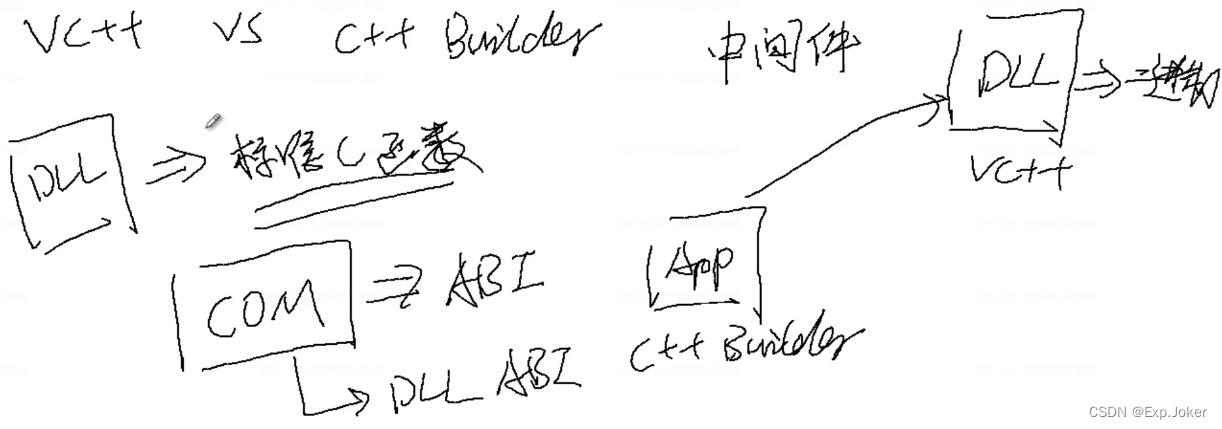 VC++ VS C++ Builder
中间件
DLL ⇒ 二进制
VC++
DLL ⇒ 标准C函数
COM ⇒ ABI
DLL ABI
App
C++ Builder
CSDN @Exp.Joker